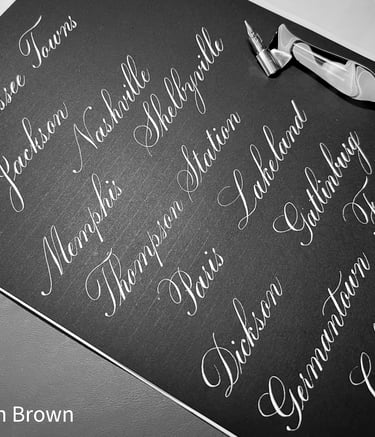 ssee Towns
Jackson
Nashville
Shelbyville
Memphis
Thompson Station
Lakeland
Paris
Gatlinburg
Dickson
Germantown
Brown